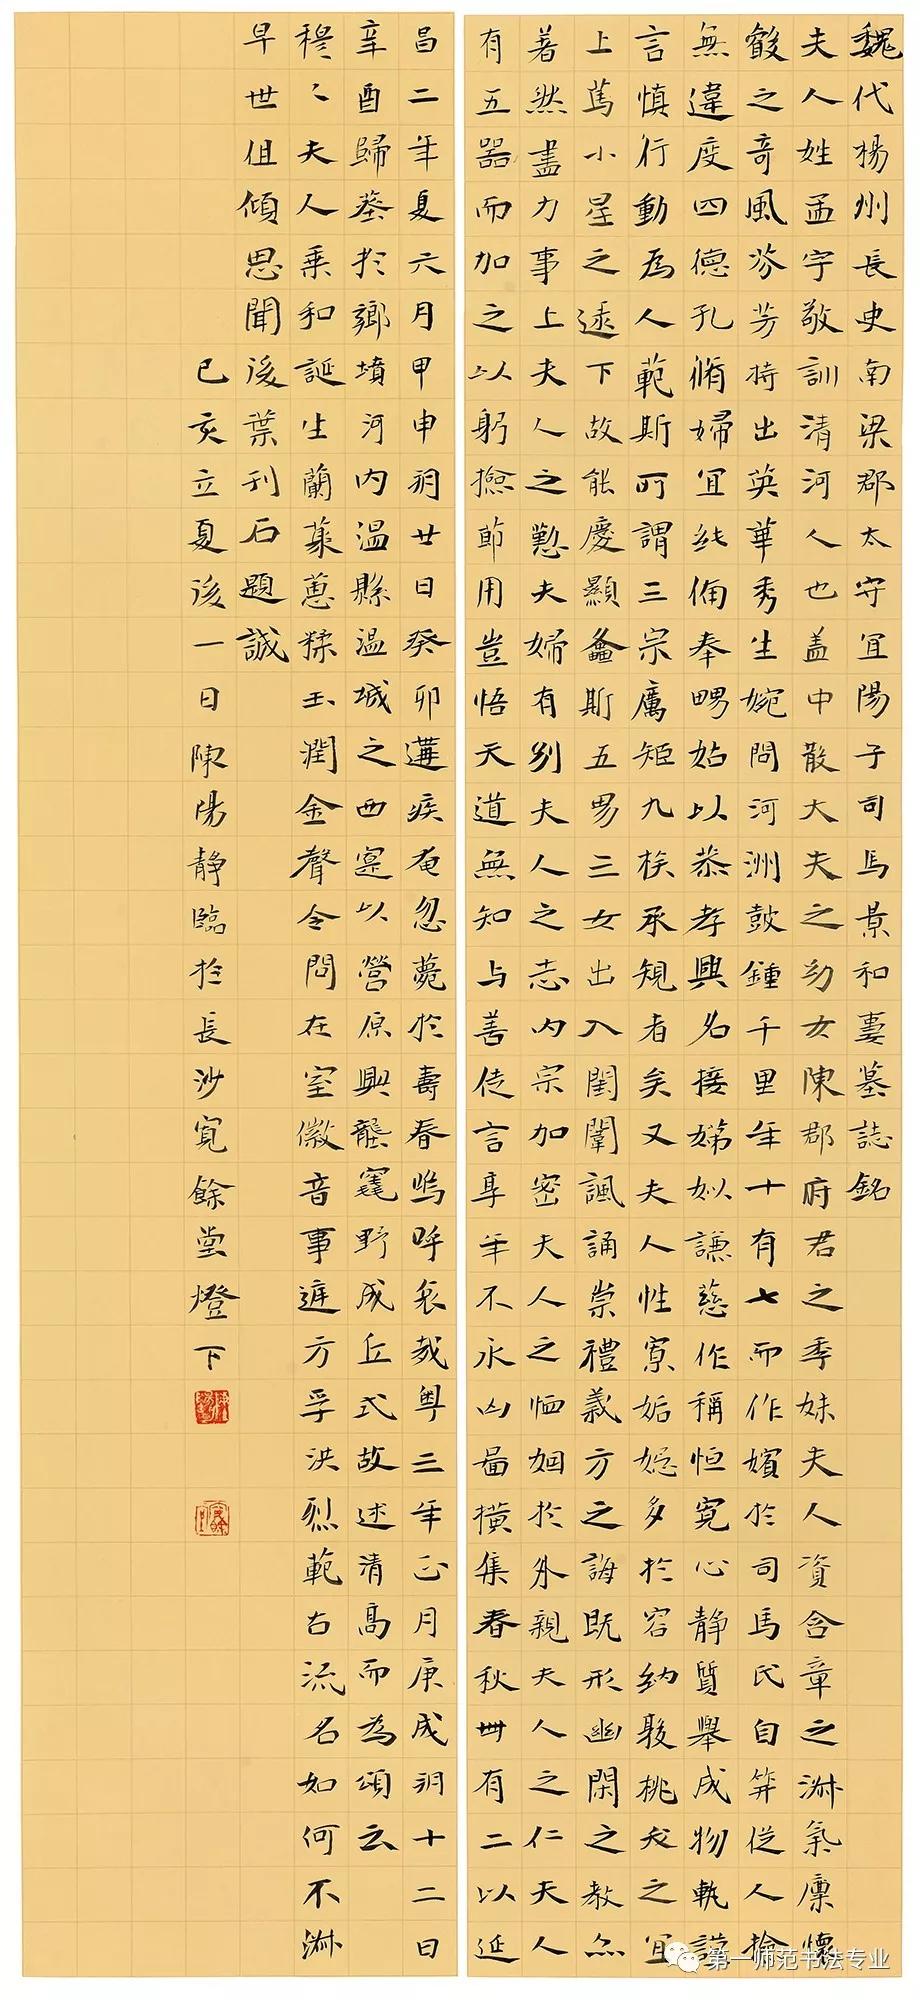 魏代楊州長史南梁郡太守宜陽子司馬景和妻墓誌銘
夫人姓孟字敬訓清河人也盖中散大夫之幼女陳郡府君之季妹夫人資含章之淑氣廩懷
叡之奇風芬芳特出英華秀生婉問河洲鼓鍾千里年十有七而作嬪於司馬氏自笄從人撿
無違度四德孔脩婦宜純俻奉舅姑以恭孝興名接娣姒謙慈作稱恒寛心静質舉成物軌謹
言慎行動為人範斯可謂三宗厲矩九族承規者矣又夫人性寡妬娼多於容納敦桃夭之宜
上篤小星之逺下故能慶顯螽斯五男三女出入閨闈諷誦崇禮義方之誨既形幽閑之教亦
著然盡力事上夫人之懃夫婦有别夫人之志内宗加密夫人之恤姻於外親夫人之仁夫人
有五器而加之以躬撿節用豈悟天道無知与善徒言享年不永凶啚横集春秋卌有二以延
昌二年夏六月甲申朔廿日癸卯遘疾奄忽薨於壽春嗚呼哀㦲粤三年正月庚戌朔十二日
辛酉歸葬於鄉墳河内温縣温城之西寔以營原興壟窀野成丘式故述清高而為頌云
穆〻夫人乗和誕生蘭蘂蕙糅玉潤金聲令問在室徽音事遲方孚洪烈範古流名如何不淑
早世徂傾思聞後葉刊石題誠
己亥立夏後一日陳陽静臨於長沙寛餘堂燈下
第一师范书法专业